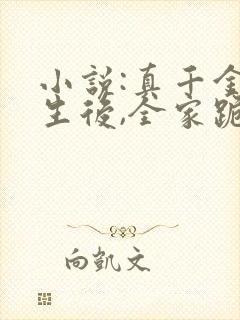 小說:真千金
生後,全家跪
向凱文